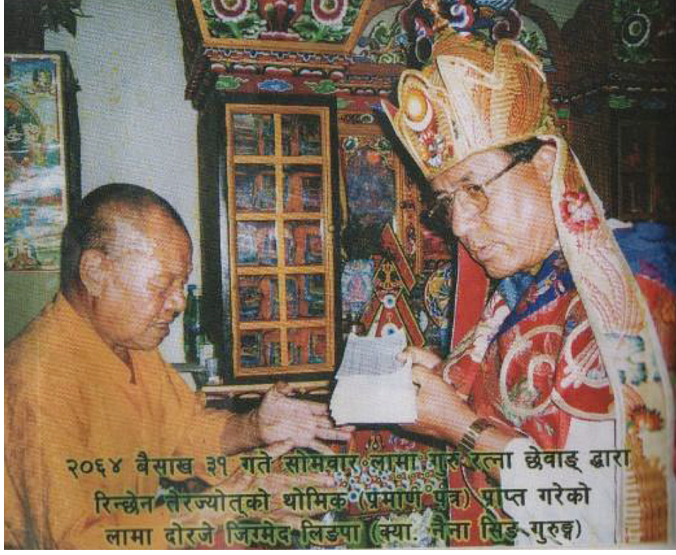 २०६४ बैसाख ३१ गते सोमवार लामा गुरु रत्ना छेवाङ् द्वारा
रिन्छेन तेरज्योत्को थोमिक (प्रमाण पुत्र) प्राप्त गरेको
लामा दोरजे जिग्मेद लिङपा (क्या. नैना सिङ गुरुङ्ग)